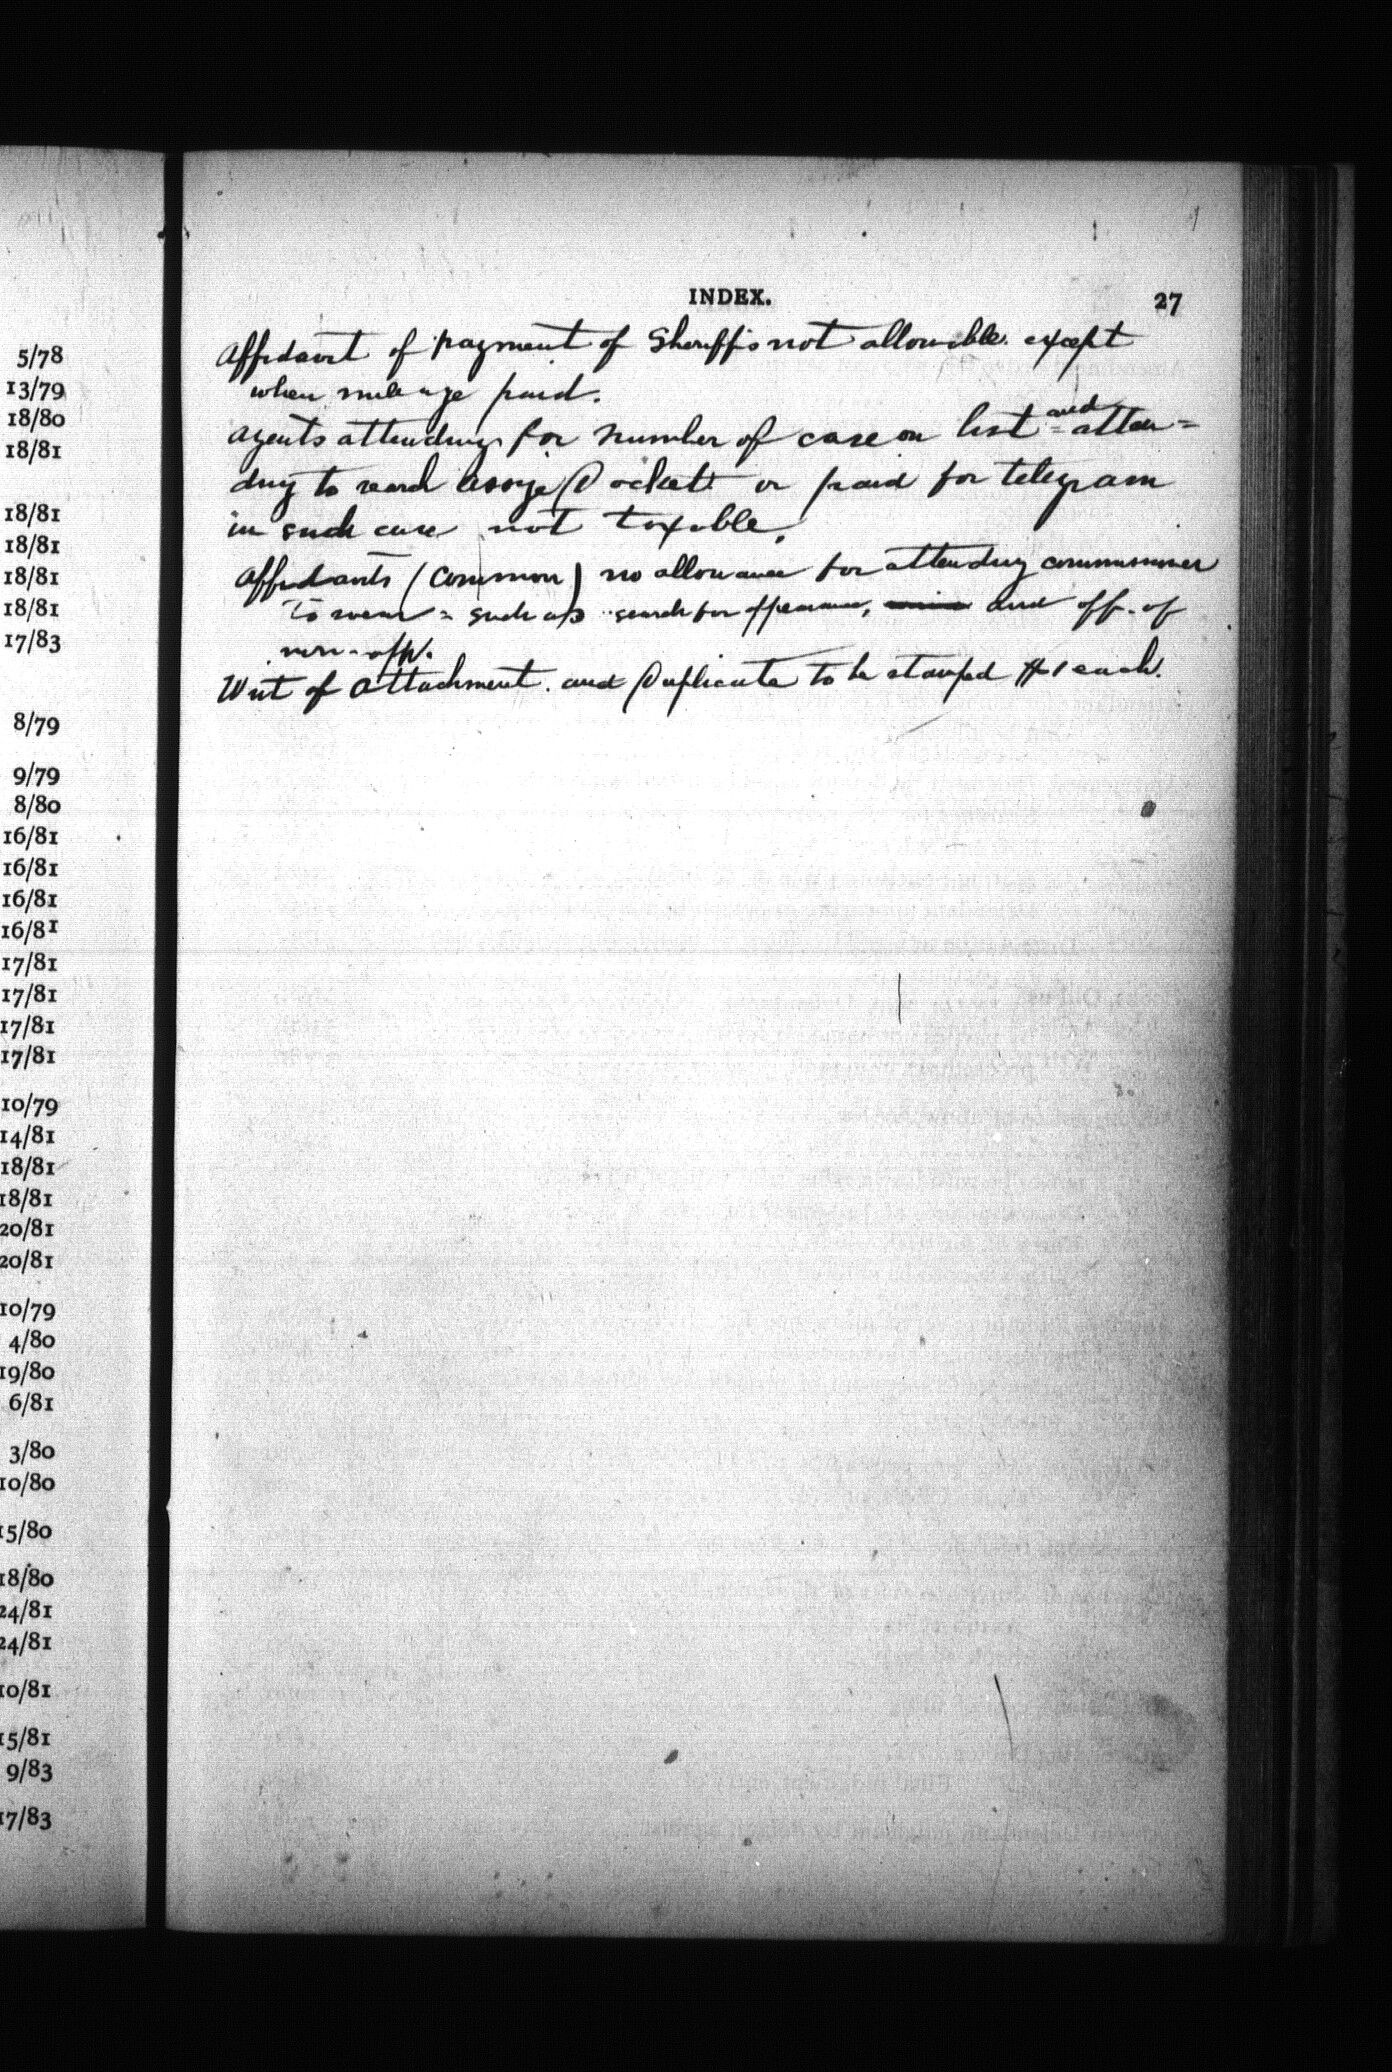 5/78
13/79
18/80
18/81
18/81
18/81
18/81
18/81
17/83
8/79
9/79
8/80
16/81
16/81
16/81
16/81
17/81
17/81
17/81
17/81
10/79
14/81
18/81
18/81
20/81
20/81
10/79
4/80
19/80
6/81
3/80
10/80
15/80
18/80
24/81
24/81
10/81
15/81
9/83
17/83
INDEX. 27
Affidavit of payment of Sheriffs not allowible except
when mileage paid.
Agents attending for number of case on list = and atten =
ding to search Assize Docket or paid for telegram
in such case not taxable.
Affidavits (Common) no allowance for attending commissioner
To swear = such as search for appearance, and aff. of
non-app.
Writ of Attachment and Duplicate to be stamped $1 each.